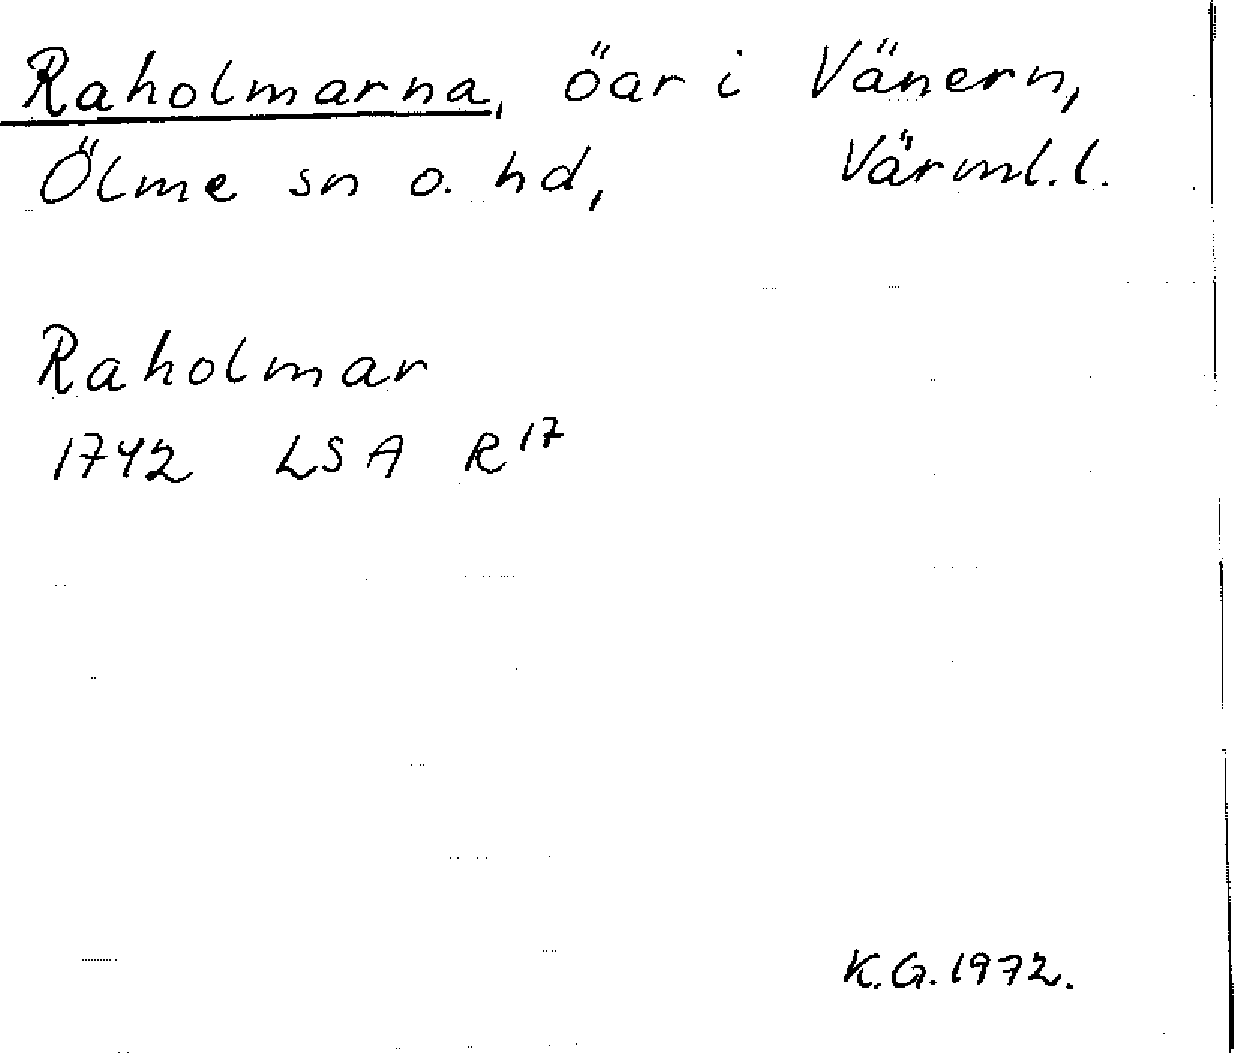 Raholmarna, öar i Vänern,
Ölme sn o. hd, Värml. l.
Raholmar
1742 LSA R17
K.G. 1972.